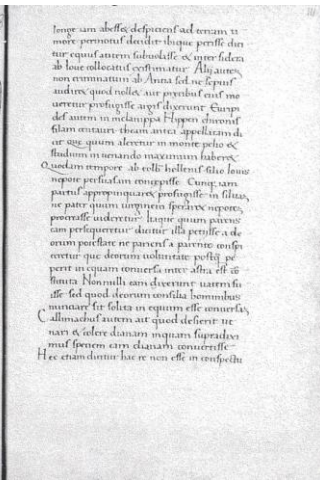 longe iam abesset despiciens ad terram ti
more permotus decidit ibique perisse dici
tur equus autem subuolasse & inter sidera
ab ioue collocatus existimatur Alii autem
non criminatum ab Antia sed ne sepius
audir& quod noll& aut precibus eius mo
ueretur profugisse argis dixerunt Euripi
des autem in melanippa Hyppen chironis
filiam centauri theam antea appellatam di
cit que quum aleretur in monte pelio &
studium in uenando maximum haber&
Quodam tempore ab eolo hellenis filio iouis
nepote persuasam concepisse Cumque iam
partus appropinquar& profugisse in siluam
ne pater quum uirginem sperar& nepotem
procreasse uideretur Itaque quum parens
eam persequeretur dicitur illa petysse a de
orum potestate ne pariens a parente conspi
ceretur que deorum uoluntate postq̃ pe
perit in equam conuersa inter astra est cõ
stituta Nonnulli eam dixerunt uatem fu
isse sed quod deorum consilia hominibus
nunciare sit solita in equum esse conuersam
Callimachus autem ait quod desierit ue
nari & colere dianam inquam supradixi
mus speciem eam dianam conuertisse
Hec etiam dicitur hac re non esse in conspectu